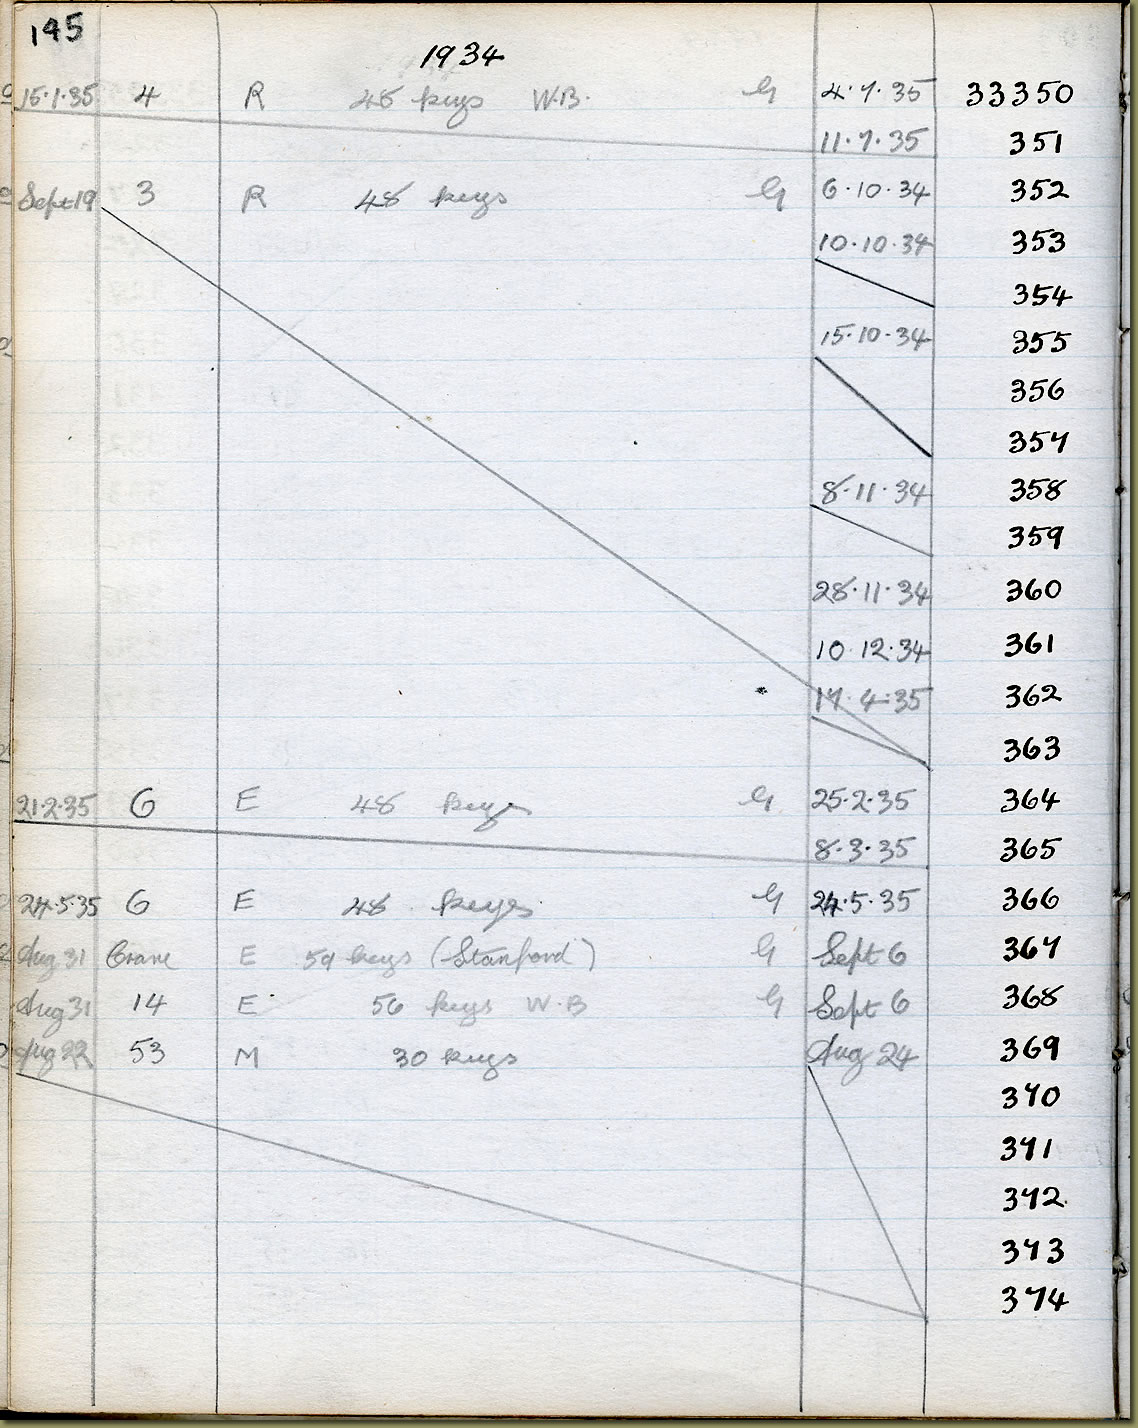 145
1934
15.1.35 4 R 48 keys W.B. G 4.7.35 33350
11.7.35 351
Sept 19 3 R 48 keys G 6.10.34 352
10.10.34 353
354
15.10.34 355
356
357
8.11.34 358
359
28.11.34 360
10.12.34 361
17.4.35 362
363
21.2.35 6 E 48 keys G 25.2.35 364
8.3.35 365
24.5.35 6 E 48 keys G 24.5.35 366
Aug 31 Crane E 59 keys (Stanford) G Sept 6 367
Aug 31 14 E 56 keys W.B G Sept 6 368
Aug 22 53 M 30 keys Aug 24 369
370
371
372
373
374